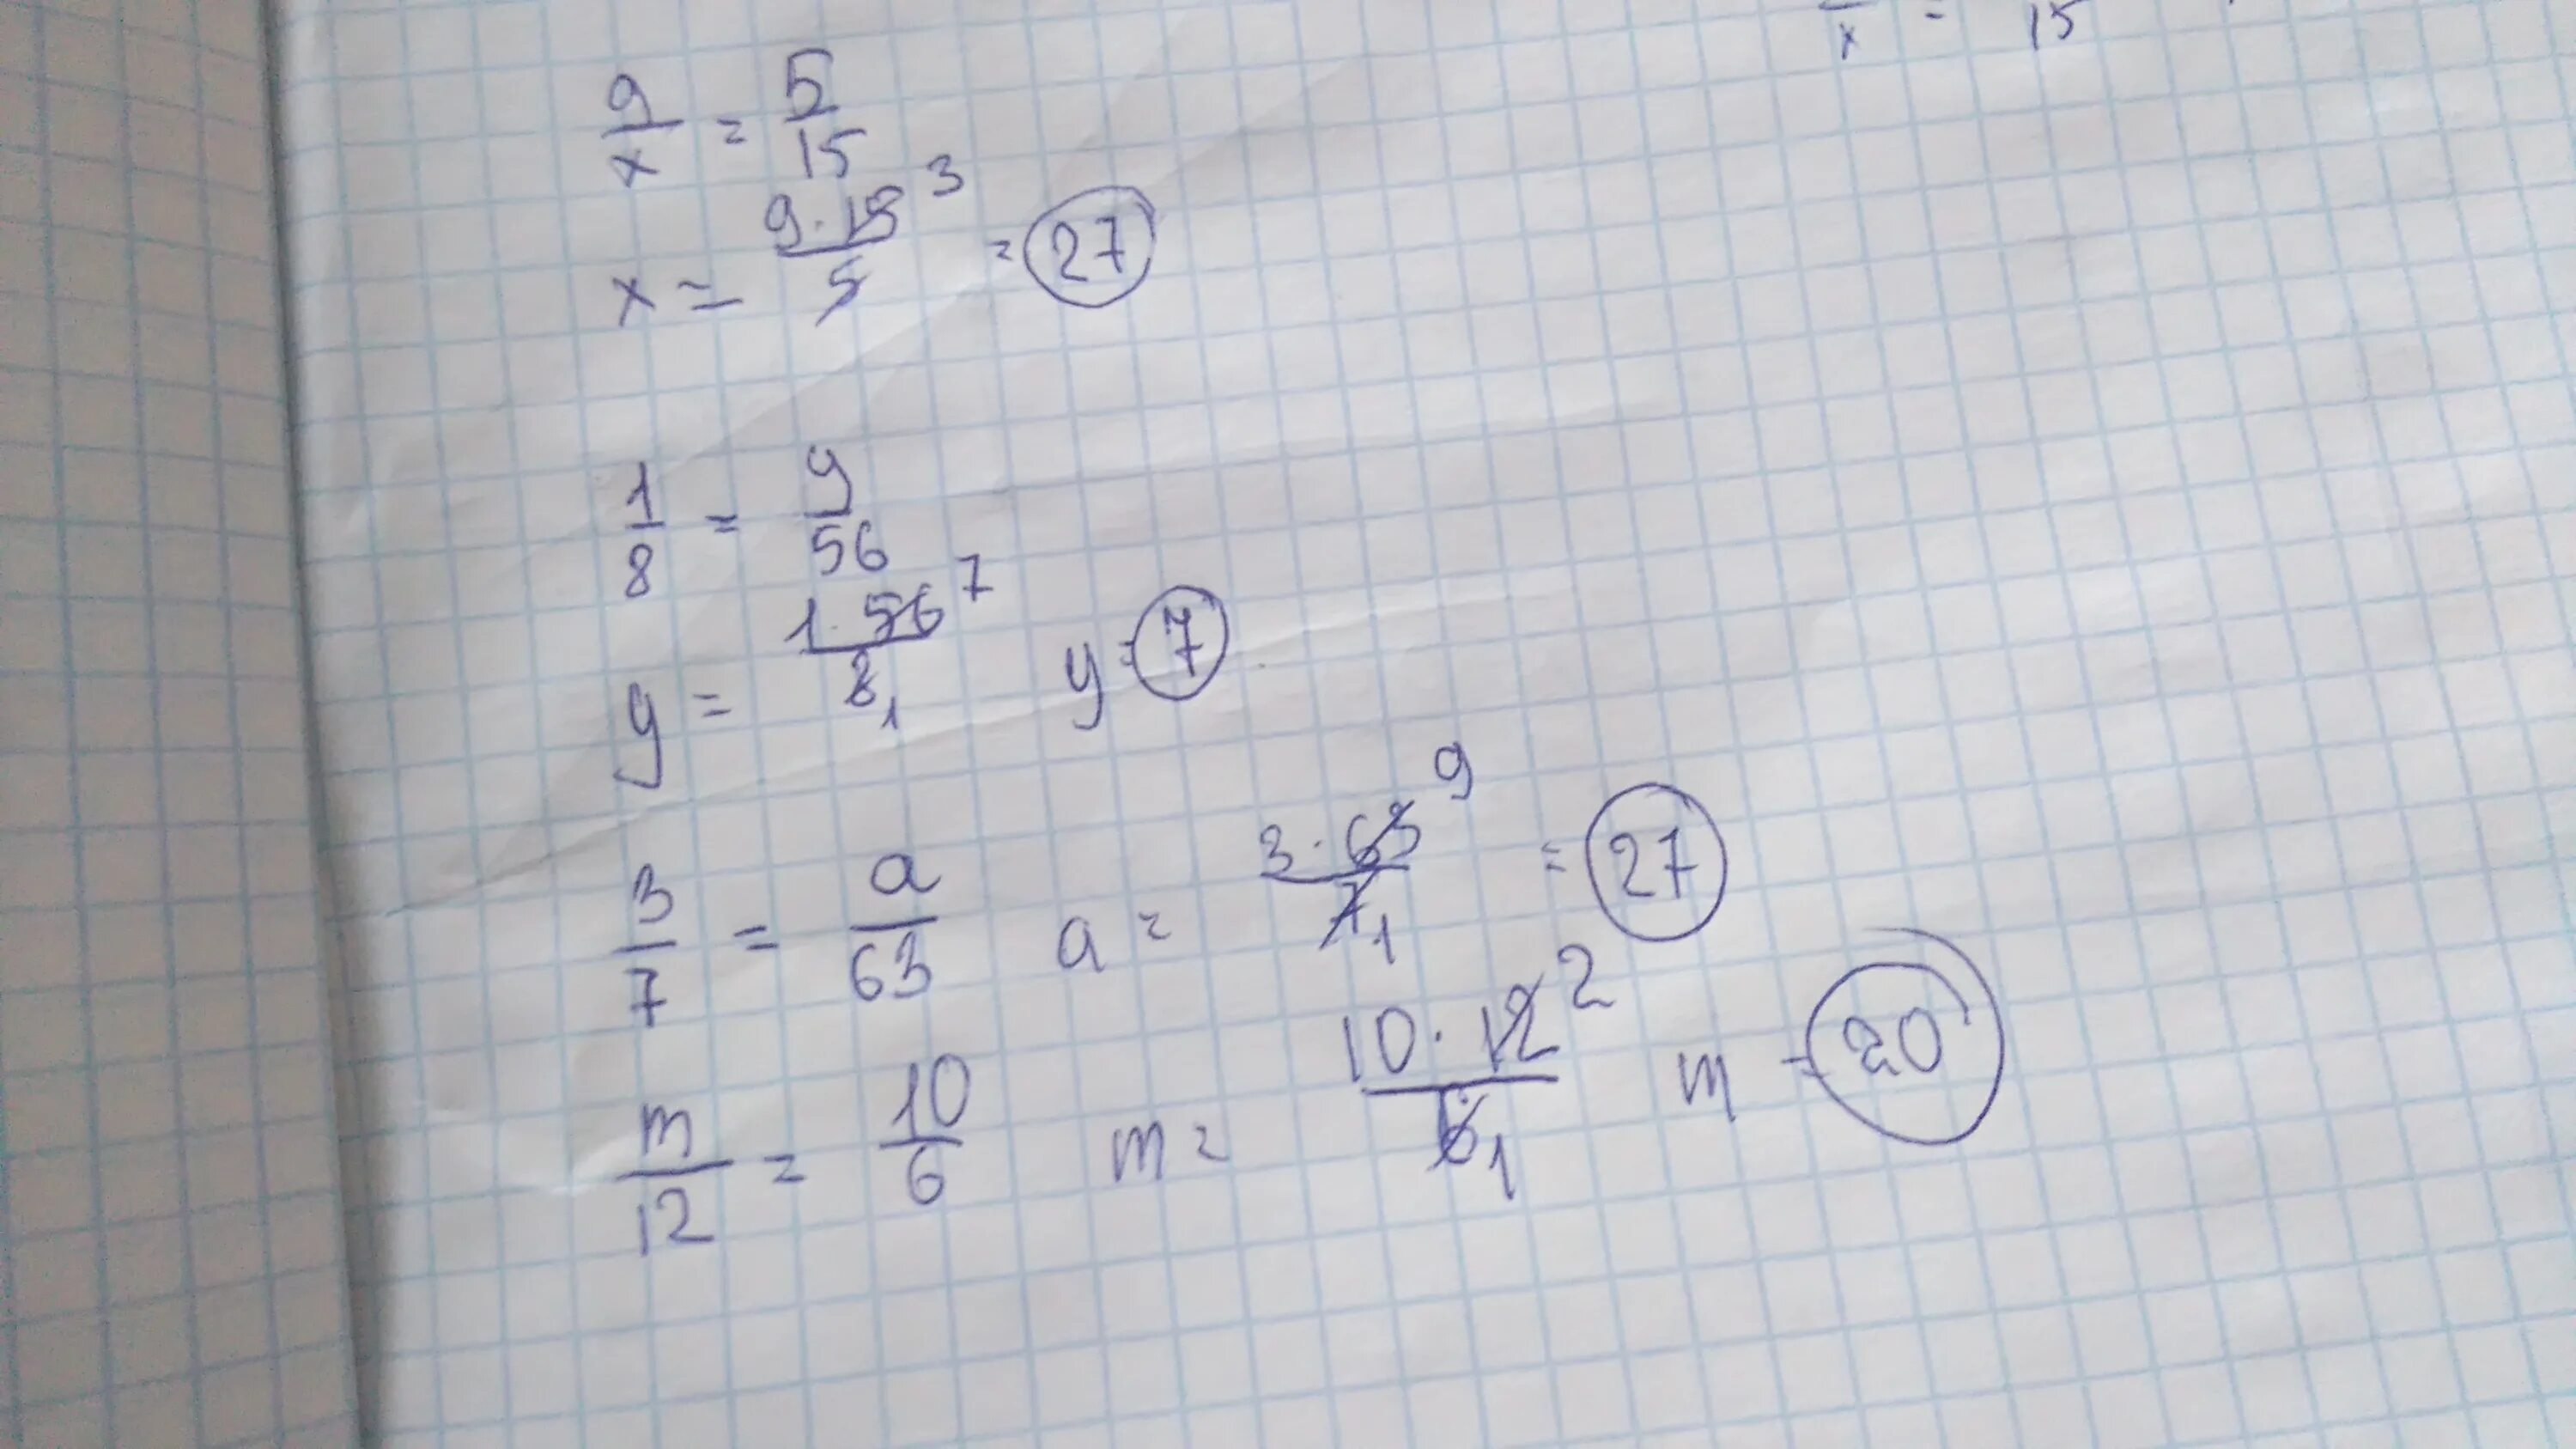 x = 15
9/x = 5/15
x = 9·15/5 3 = 27
1/8 = y/56
y = 1·56/8 7 1 y = 7
3/7 = a/63 a = 3·63/7 9 1 = 27
m/12 = 10/6 m = 10·12/6 2 1 m = 20